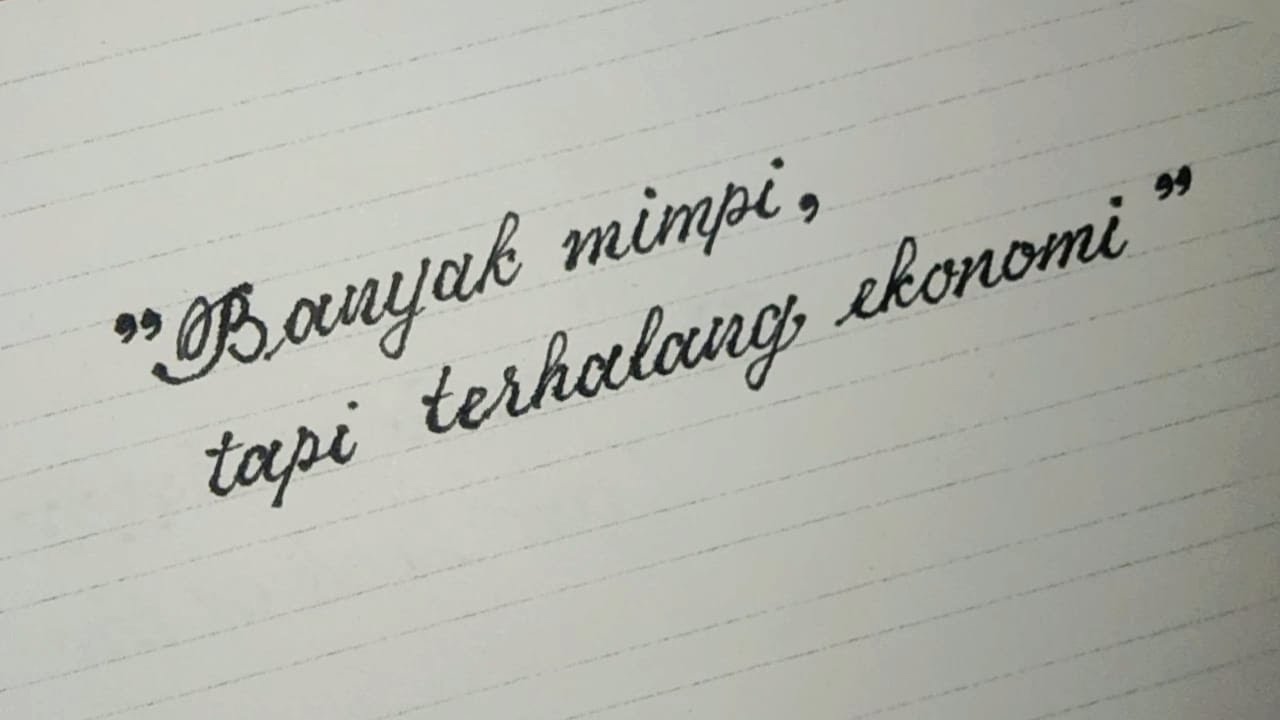 ”Banyak mimpi,
tapi terhalang ekonomi”